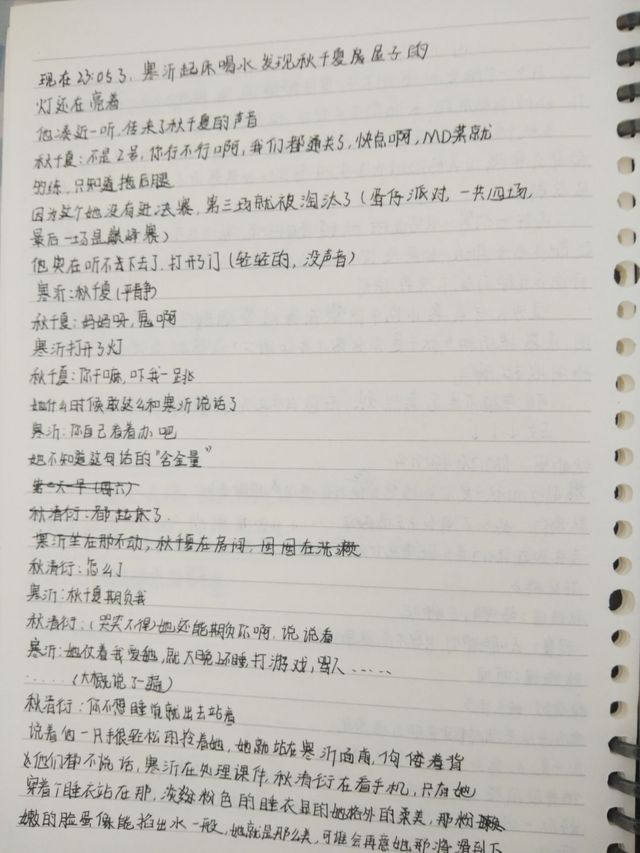 现在23:05了,寒沂起床喝水发现秋千夏房屋子的
灯还在亮着
他凑近一听,传来了秋千夏的声音
秋千夏:不是2号,你行不行啊,我们都通关了,快点啊,MD菜就
的练,只知道拖后腿
因为这个她没有进决赛,第三场就被淘汰了(蛋仔派对,一共四场,
最后一场是巅峰赛)
他实在听不去下去了.打开了门(轻轻的,没声音)
寒沂:秋千夏(平静)
秋千夏:妈妈呀,鬼啊
寒沂打开了灯
秋千夏:你干嘛,吓我一跳
她什么时候敢这么和寒沂说话了
寒沂:你自己看着办吧
她不知道这句话的“含金量”
第二天一早(周六)
秋清衍:都起床了.
寒沂坐在那不动,秋千夏在房间,团团在洗漱
秋清衍:怎么了
寒沂:秋千夏期负我
秋清衍:(哭笑不得)她还能期负你啊,说说看
寒沂:她仗着我爱她,就大晚不睡,打游戏,骂人……
……(大概说了一遍)
秋清衍:你不想睡觉就出去站着
说着他一只手很轻松的拎着她,她就站在寒沂面前,佝偻着背
他们都不说话,寒沂在处理课件,秋清衍在看手机,只有她
穿着个睡衣站在那,淡粉色的睡衣显的她格外的柔美,那粉
嫩的脸蛋像能掐出水一般,她就是那么美,可谁会再意她那海滑到下